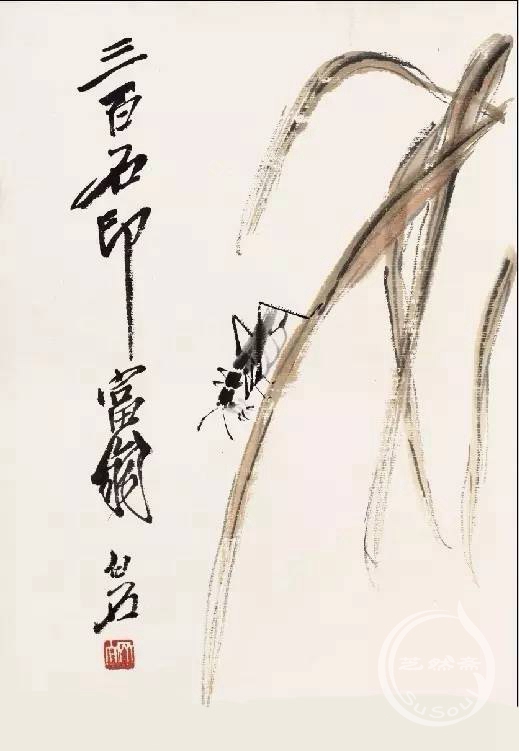 三百石印富翁
白石
艺然斋
SuSoul